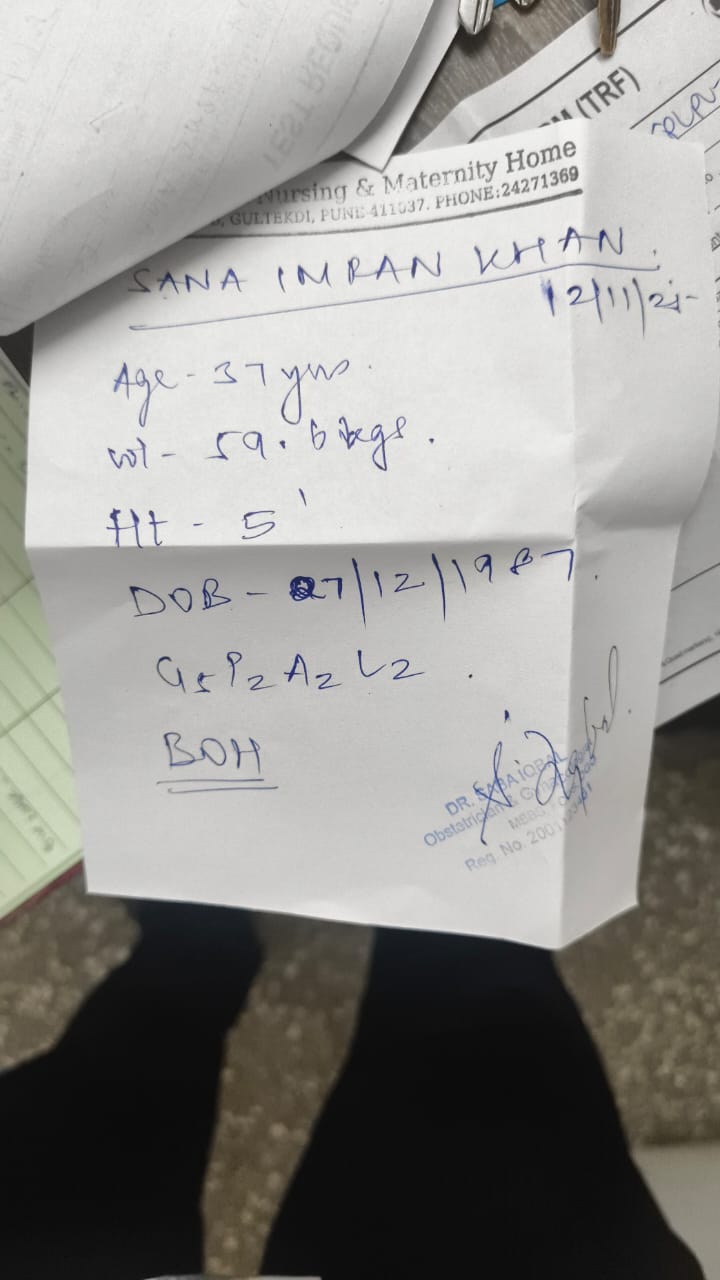 M (TRF)
Nursing & Maternity Home
GULTEKDI, PUNE-411037. PHONE:24271369
SANA IMRAN KHAN.
12/11/25
Age - 37 yrs.
wt - 59.6 kgs.
Ht - 5'
DOB - 07/12/1987.
G5 P2 A2 L2.
BOH
DR. SABA IQBAL
Obstetrician &
MBBS
Reg. No. 2001